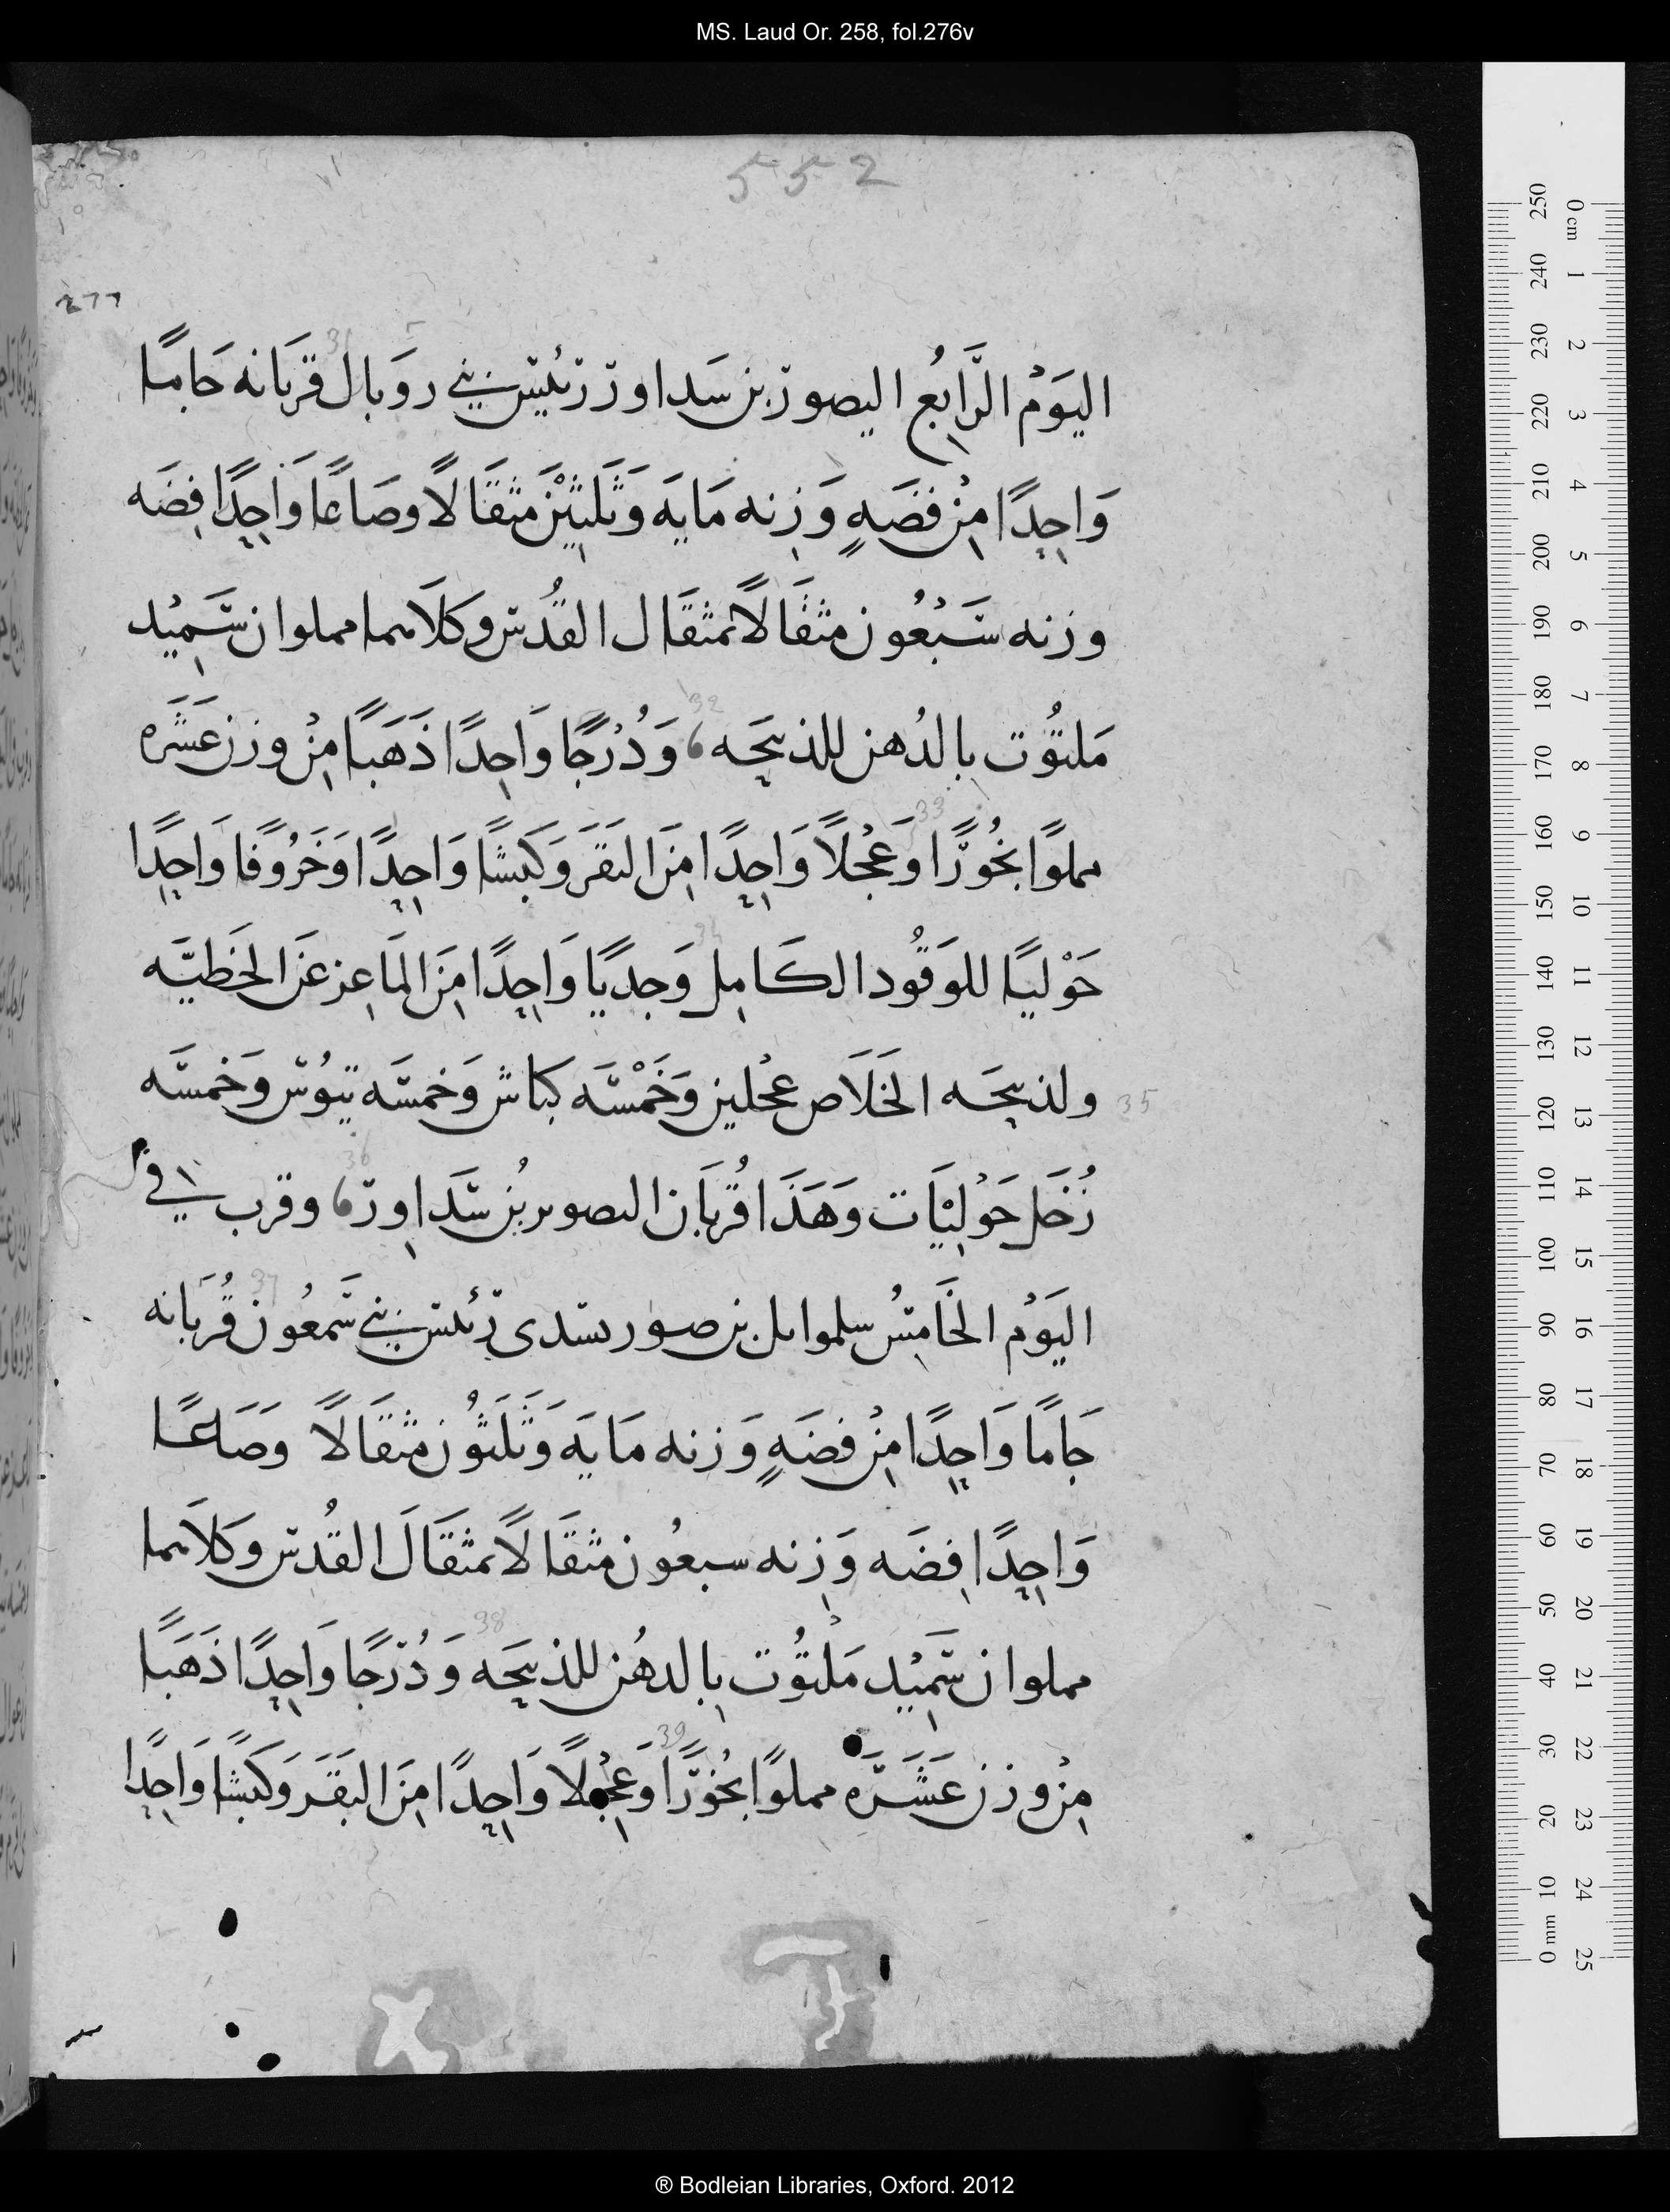 MS. Laud Or. 258, fol.276v
552
277
اليَوْمُ الرَّابِعُ اليصور بن سَداور رَئيس بني روَبال قرَبَانه جَامًا
وَاحِدًا مِنْ فضَةٍ وَزِنه مَايَه وَثَلَثِيْنَ مثقَالًا وصَاعًا وَاحِدًا فِضَه
وزنه سَبْعُون مثقَالًا بمثقَال القُدس وكلَاهما مملوان سَمِيْد
مَلتُوت بالدُهن للذبيَحه وَدُرْجًا وَاحِدًا ذَهَبًا مِنْ وزن عَشَره
مملوًا بخُورًا وَعَجْلًا وَاحِدًا مِنَ البَقَر وَكَبشًا وَاحِدًا وَخَرُوفًا وَاحِدًا
حَوْليًا للوَقُود الكَامِل وَجديًا وَاحِدًا مِنَ المَاعِز عَن الخَطيَّه
ولذبيحَه الخَلَاص عجْلين وَخَمْسَه كباش وَخمسَه تيُوس وَخمسَه
رُخَل حَوْلِيَات وَهَذَا قُربَان اليصور بُن سَدَاور وقرب في
اليَوْم الخَامِسُ سلموايل بن صور يسدي رَئيس بني سَمعُون قُربَانه
جَامًا وَاحِدًا مِنْ فضَةٍ وَزنه مَايَه وَثَلَثُون مثقَالًا وَصَاعًا
وَاحِدًا فِضَه وَزِنه سبعُون مثقَالًا بمثقَالَ القُدس وكلَاهما
مملوان سَمِيْد مَلْتُوت بِالدهُن للذبيَحَه وَدُرْجًا وَاحِدًا ذَهَبًا
مِنْ وزن عَشَرَه مملوًا بخُورًا وَعَجِلًا وَاحِدًا مِنَ البَقَر وَكَبشًا وَاحِدًا
31
32
33
34
35
36
37
38
39
® Bodleian Libraries, Oxford. 2012